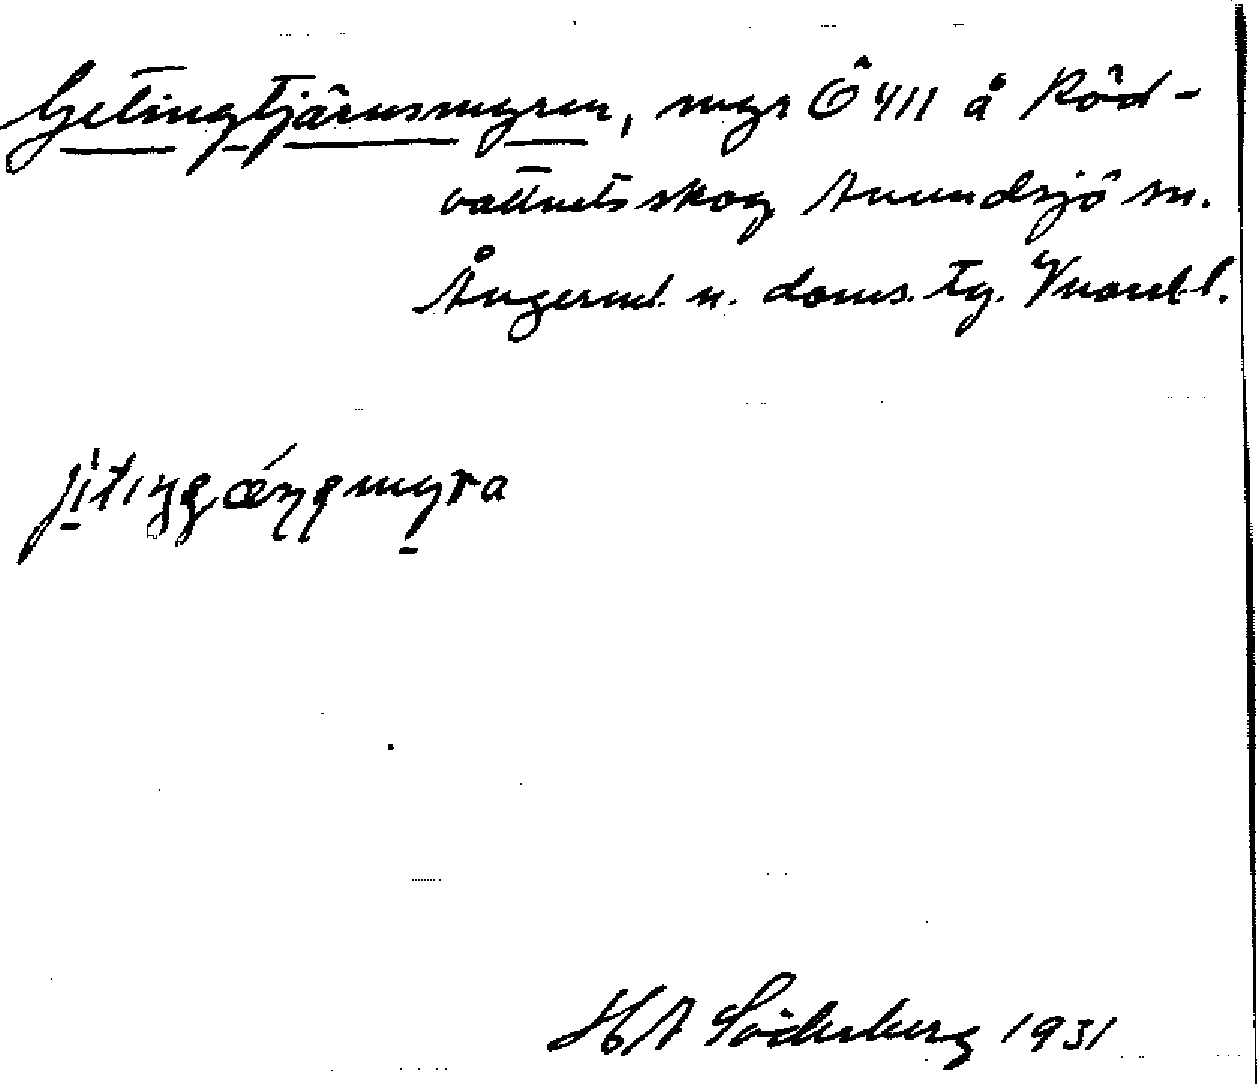 Getingtjärnsmyren, myr Ö 411 å Röd-
vattnets skog Anundsjö sn.
Ångerml. n. doms. tg. Vnorrl.
H A Söderberg 1931